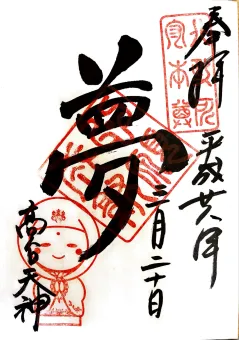 奉拝
平成廿八年
三月二十日
夢
高台天神